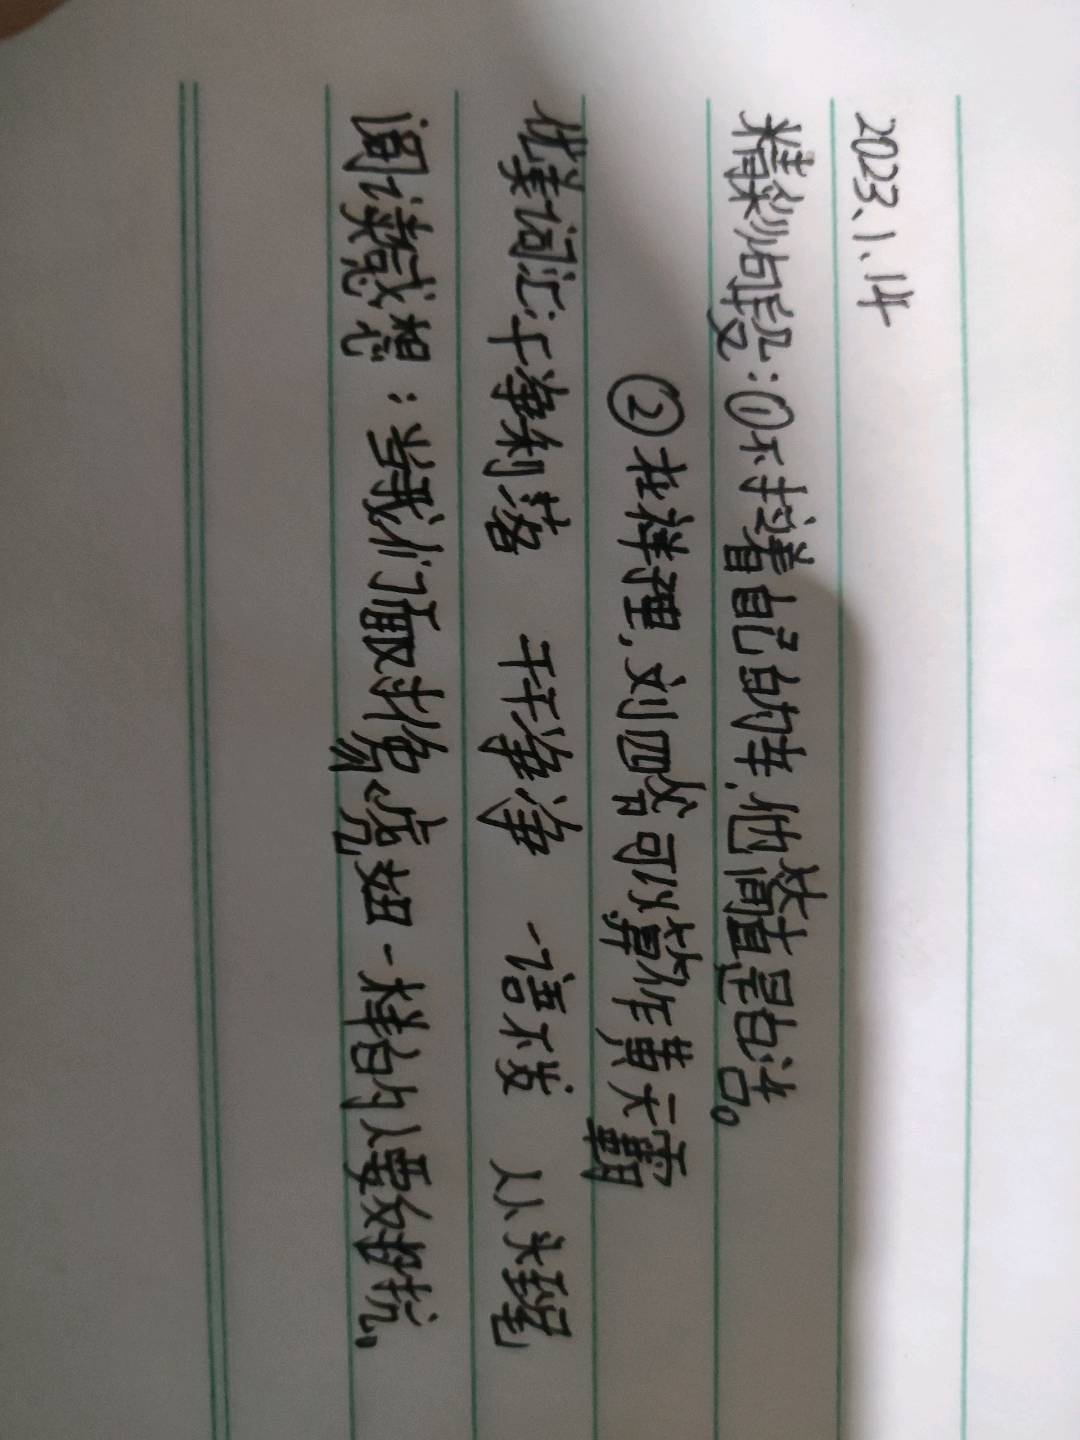 2023、1、14
精彩句段:①不拉着自己的车,他简直是白活。
②在祥裡,刘四爷可以算作黄天霸
优美词汇:干净利落 干干净净 一语不发 从头到尾
阅读感想:当我们面对像虎妞一样的人要抵抗。